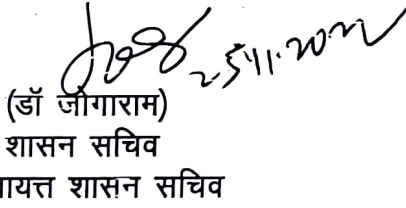 25/11.2022
(डॉ जोगाराम)
शासन सचिव
ायत्त शासन सचिव